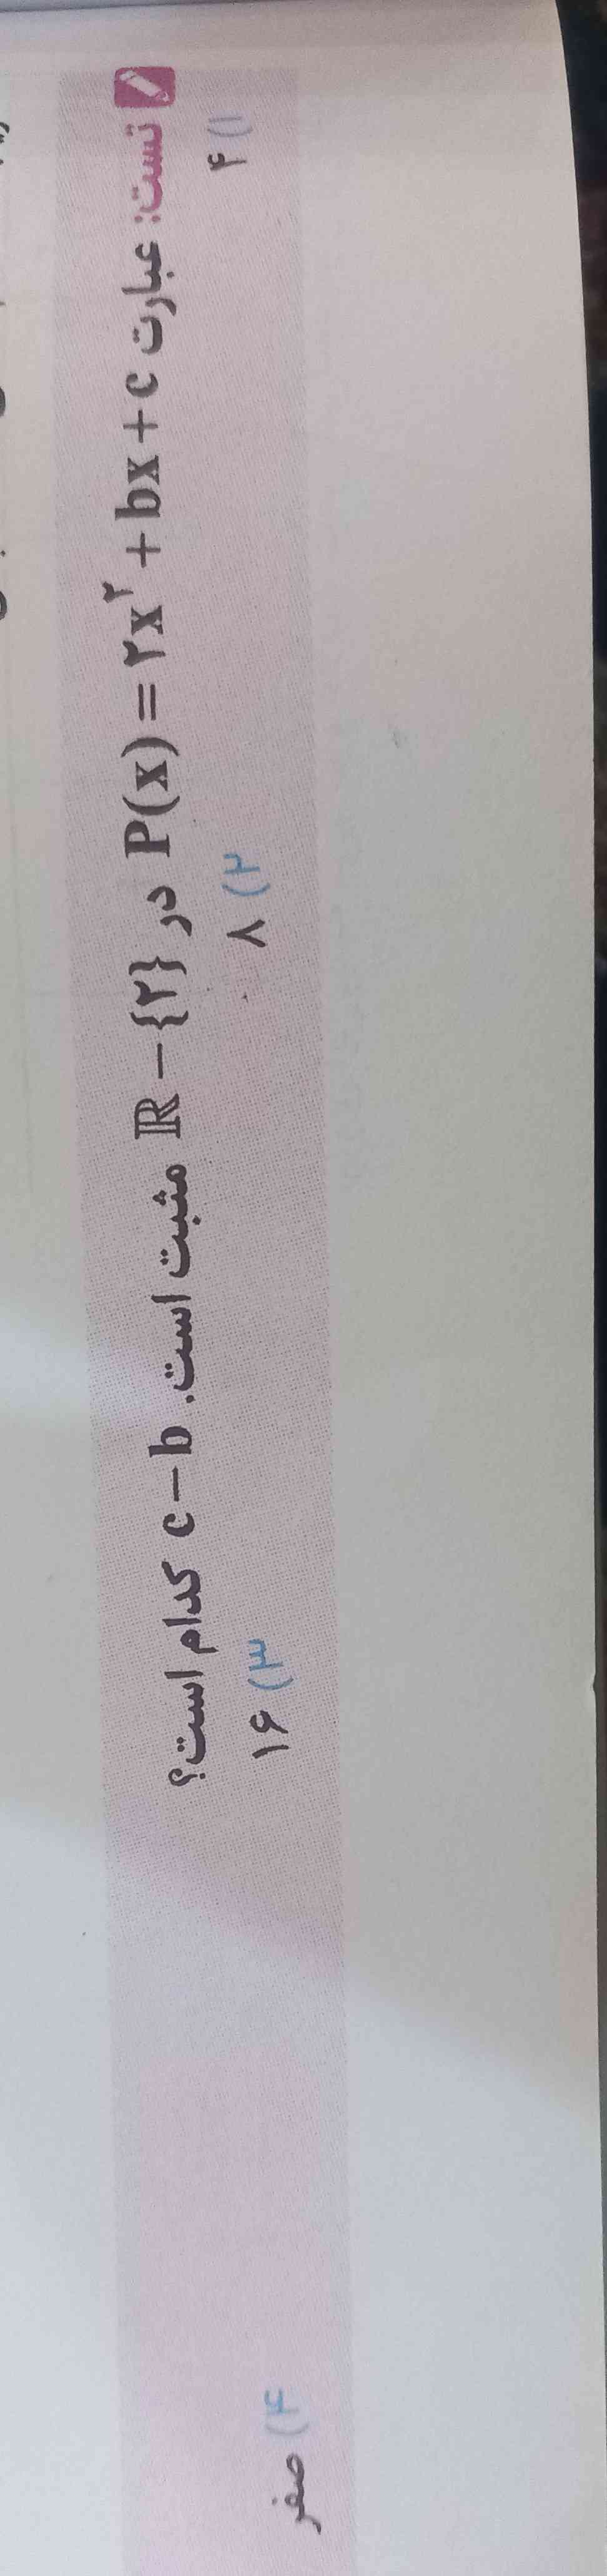 تست: عبارت P(x) = ۲x^۲ + bx + c در ℝ − {۲} مثبت است. c − b کدام است؟
۱) ۴ ۲) ۸ ۳) ۱۶ ۴) صفر